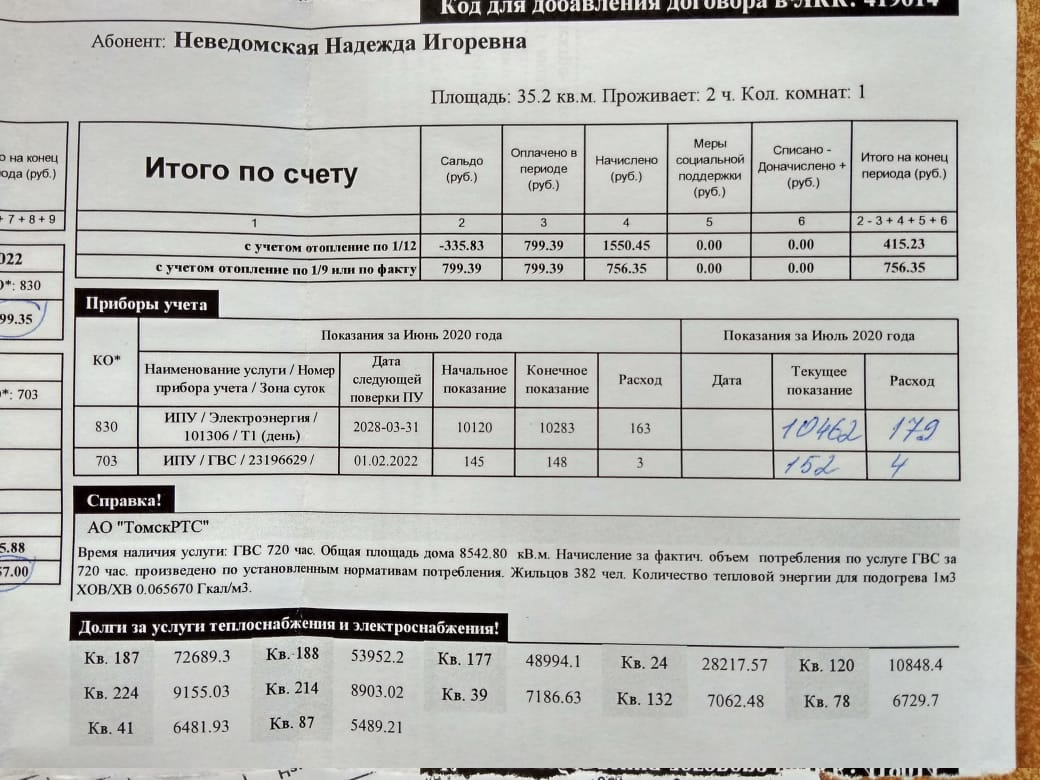 Код для добавления договора в ЛКК: 419614
Абонент: Неведомская Надежда Игоревна
Площадь: 35.2 кв.м. Проживает: 2 ч. Кол. комнат: 1
о на конец
ода (руб.)
+ 7 + 8 + 9
022
О*: 830
99.35
*: 703
5.88
57.00
Итого по счету
Сальдо
(руб.)
Оплачено в
периоде
(руб.)
Начислено
(руб.)
Меры
социальной
поддержки
(руб.)
Списано -
Доначислено +
(руб.)
Итого на конец
периода (руб.)
1 2 3 4 5 6 2 - 3 + 4 + 5 + 6
с учетом отопление по 1/12 -335.83 799.39 1550.45 0.00 0.00 415.23
с учетом отопление по 1/9 или по факту 799.39 799.39 756.35 0.00 0.00 756.35
Приборы учета
КО*
Показания за Июнь 2020 года
Показания за Июль 2020 года
Наименование услуги / Номер
прибора учета / Зона суток
Дата
следующей
поверки ПУ
Начальное
показание
Конечное
показание
Расход
Дата
Текущее
показание
Расход
830 ИПУ / Электроэнергия /
101306 / Т1 (день) 2028-03-31 10120 10283 163 10462 179
703 ИПУ / ГВС / 23196629 / 01.02.2022 145 148 3 152 4
Справка!
АО "ТомскРТС"
Время наличия услуги: ГВС 720 час. Общая площадь дома 8542.80 кВ.м. Начисление за фактич. объем потребления по услуге ГВС за
720 час. произведено по установленным нормативам потребления. Жильцов 382 чел. Количество тепловой энергии для подогрева 1м3
ХОВ/ХВ 0.065670 Гкал/м3.
Долги за услуги теплоснабжения и электроснабжения!
Кв. 187 72689.3 Кв. 188 53952.2 Кв. 177 48994.1 Кв. 24 28217.57 Кв. 120 10848.4
Кв. 224 9155.03 Кв. 214 8903.02 Кв. 39 7186.63 Кв. 132 7062.48 Кв. 78 6729.7
Кв. 41 6481.93 Кв. 87 5489.21